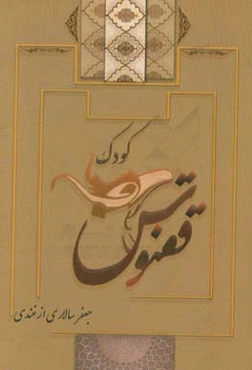 کودک
ققنوس
جعفر سالاری ازغندی